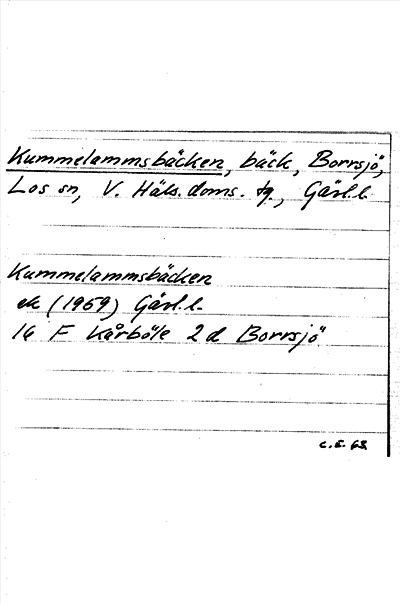 Kummelammsbäcken, bäck, Borrsjö,
Los sn, V. Häls. doms. tg., Gävl. l.
Kummelammsbäcken
ek (1959) Gävl. l.
16 F Kårböle 2 d Borrsjö
C. E. 63